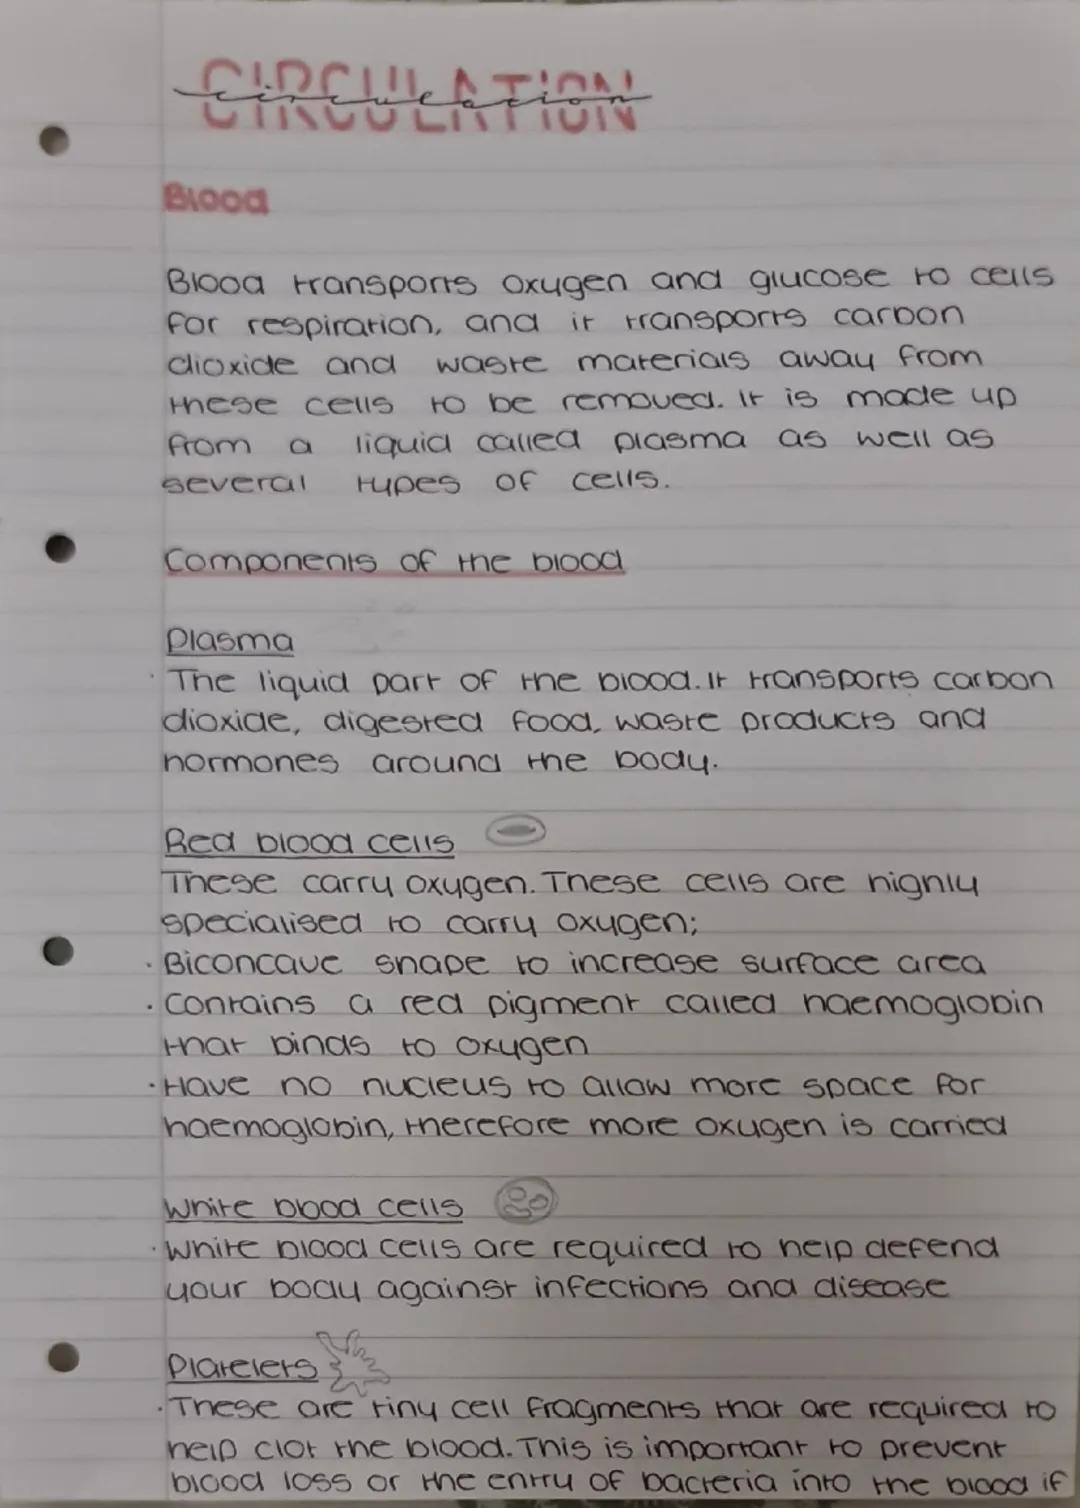 CIRCULATION
circulation
Blood
Blood transports oxygen and glucose to cells
for respiration, and it transports carbon
dioxide and waste materials away from
these cells to be removed. It is made up
from a liquid called plasma as well as
several types of cells.
Components of the blood
Plasma
· The liquid part of the blood. It transports carbon
dioxide, digested food, waste products and
hormones around the body.
Red blood cells
These carry oxygen. These cells are highly
specialised to carry oxygen;
· Biconcave shape to increase surface area
· Contains a red pigment called haemoglobin
that binds to oxygen
· Have no nucleus to allow more space for
haemoglobin, therefore more oxygen is carried
White blood cells
· White blood cells are required to help defend
your body against infections and disease
Platelets
· These are tiny cell fragments that are required to
help clot the blood. This is important to prevent
blood loss or the entry of bacteria into the blood if